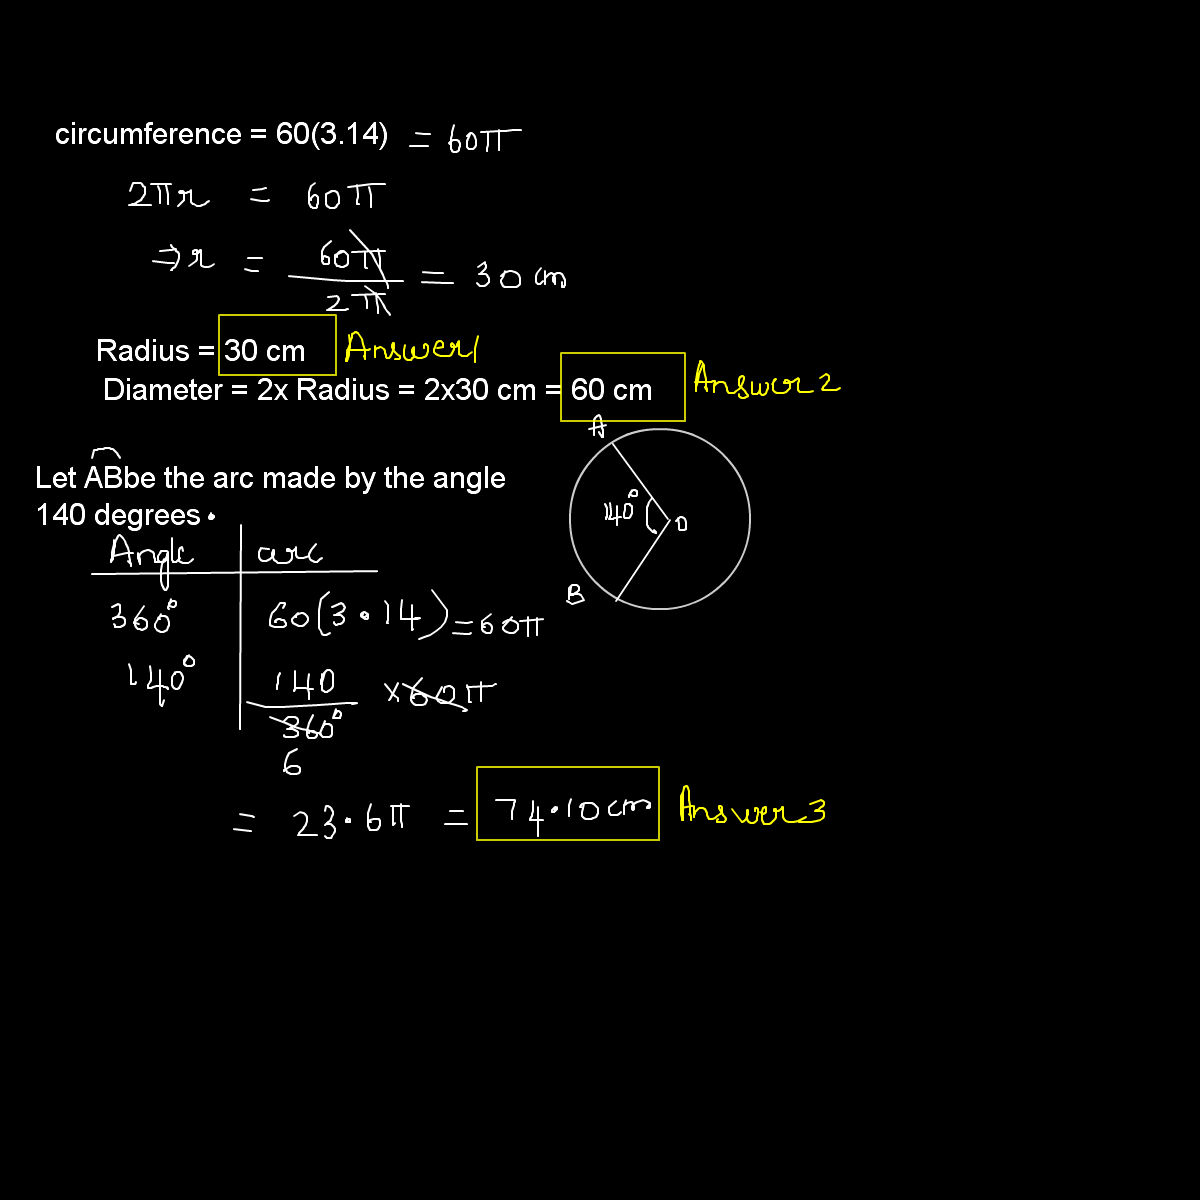 circumference = 60(3.14) = 60π
2πr = 60π
⇒ r = 60π / 2π = 30 cm
Radius = 30 cm Answer 1
Diameter = 2x Radius = 2x30 cm = 60 cm Answer 2
A
Let ABbe the arc made by the angle
140° O
140 degrees.
Angle arc
B
360° 60(3.14) = 60π
140° 140 / 360° x 60π
6
= 23.6π = 74.10 cm Answer 3